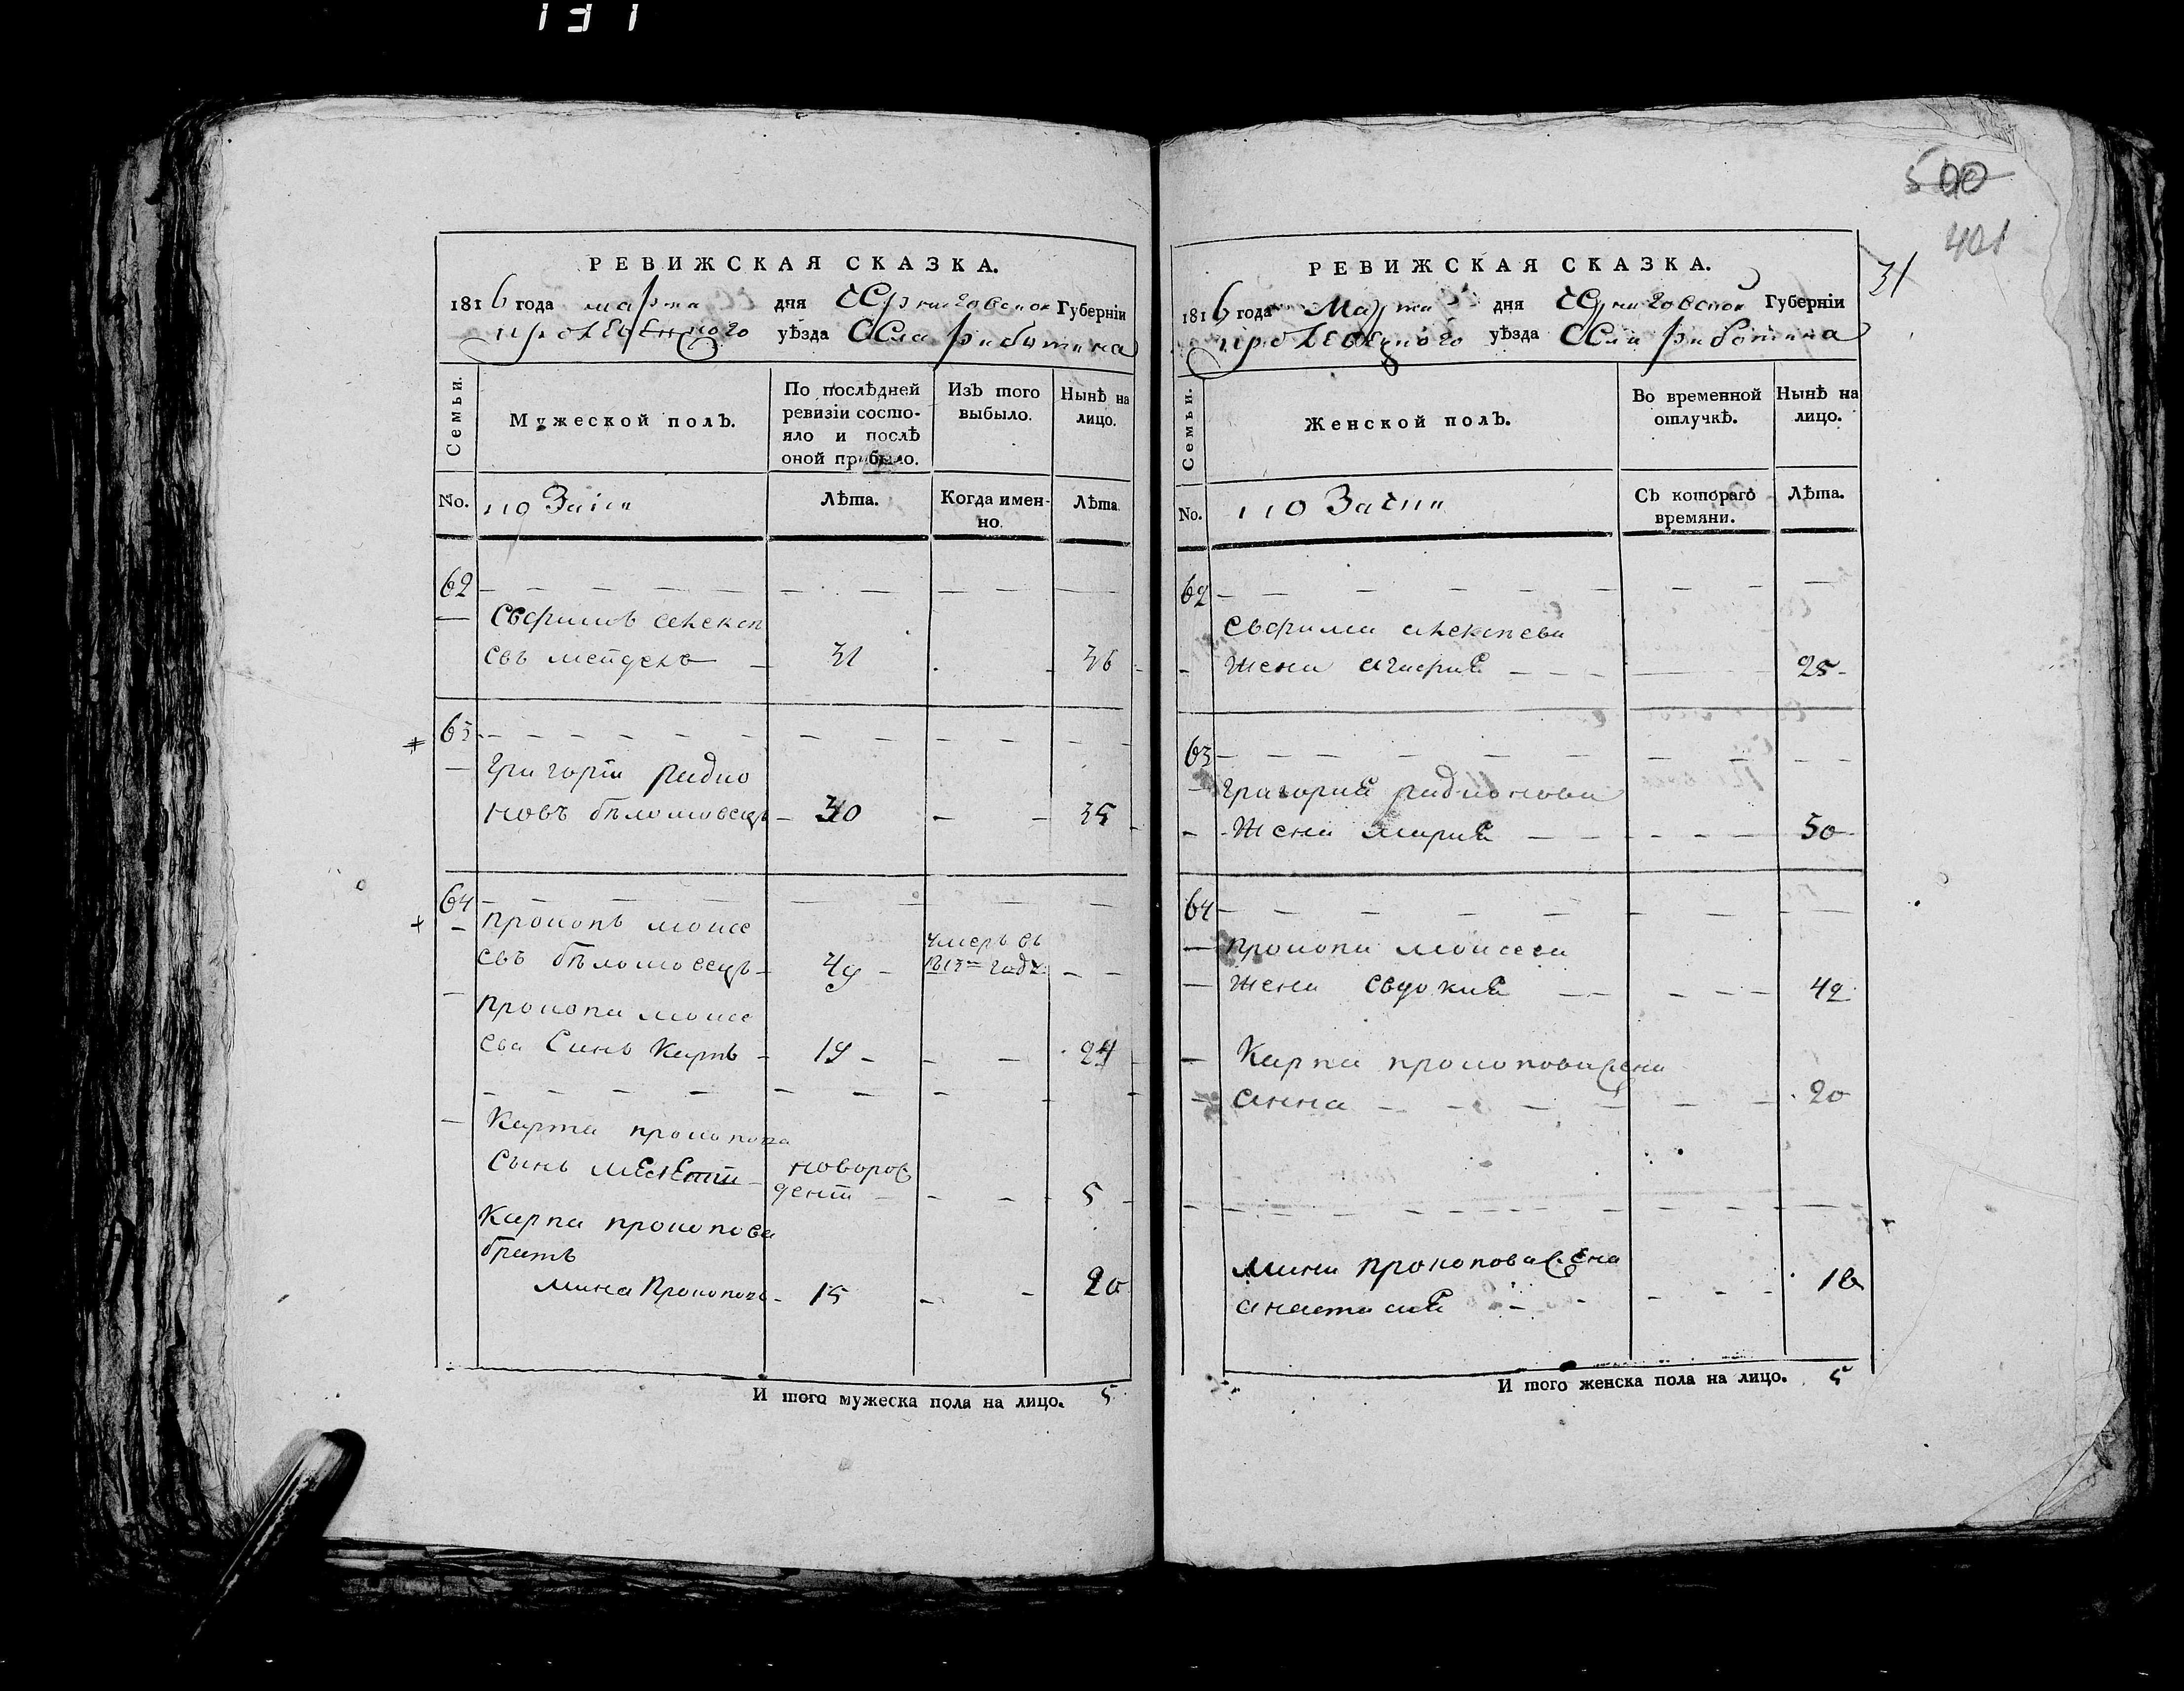 131
РЕВИЖСКАЯ СКАЗКА.
1816 года марта дня Черниговской Губерніи
уѣзда Села Риботина
Семьи.
Мужеской полъ.
По послѣдней ревизіи состо-
яло и послѣ
оной прибыло.
Изъ того выбыло.
Нынѣ на лицо.
No.
Лѣта.
Когда имен-
но.
Лѣта.
62
Евфимъ Алексѣ
евъ 31 36
63
Григорій Радио
новъ бѣломовецъ 30 35
64
Прокопъ Моисе
евъ бѣломовецъ 49 умеръ въ
1813 годе
Прокопа Моисе
ева Синъ Карпъ 19 24
Карпа Прокопова
Сынъ Мелетій новорож
дент 5
Карпа Прокопова
братъ
Мина Прокоповъ 15 20
И того мужеска пола на лицо. 5
500
401
31
РЕВИЖСКАЯ СКАЗКА.
1816 года Марта дня Черниговской Губерніи
уѣзда Села Риботина
Семьи.
Женской полъ.
Во временной
отлучкѣ.
Нынѣ на
лицо.
No.
Съ котораго
времяни.
Лѣта.
62
Евфима Алексѣева
жена 25
63
Григория Радионова
Жена Мария 30
64
Прокопа Моисеева
жена Евдокия 42
Карпа Прокопова жена
Анна 20
Мины Прокопова жена
Анастасия 18
И того женска пола на лицо. 5